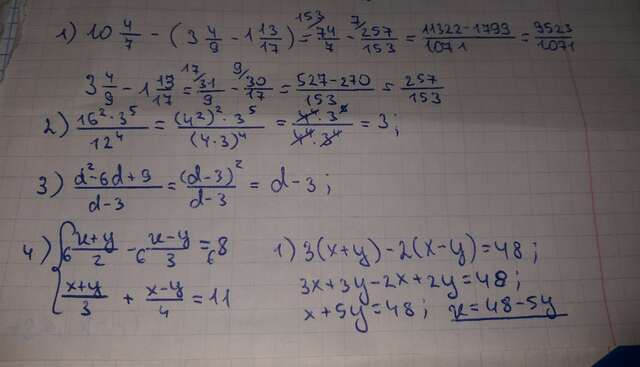 1) 10 4/7 - (3 4/9 - 1 13/17) = 74/7 - 257/153 = (11322-1799)/1071 = 9523/1071
3 4/9 - 1 13/17 = 31/9 - 30/17 = (527-270)/153 = 257/153
2) (16² · 3⁵)/12⁴ = ((4²)² · 3⁵)/(4·3)⁴ = (4⁴ · 3⁵)/(4⁴ · 3⁴) = 3;
3) (d²-6d+9)/(d-3) = (d-3)²/(d-3) = d-3;
4) { (x+y)/2 - (x-y)/3 = 8
(x+y)/3 + (x-y)/4 = 11
1) 3(x+y)-2(x-y)=48;
3x+3y-2x+2y=48;
x+5y=48; x=48-5y